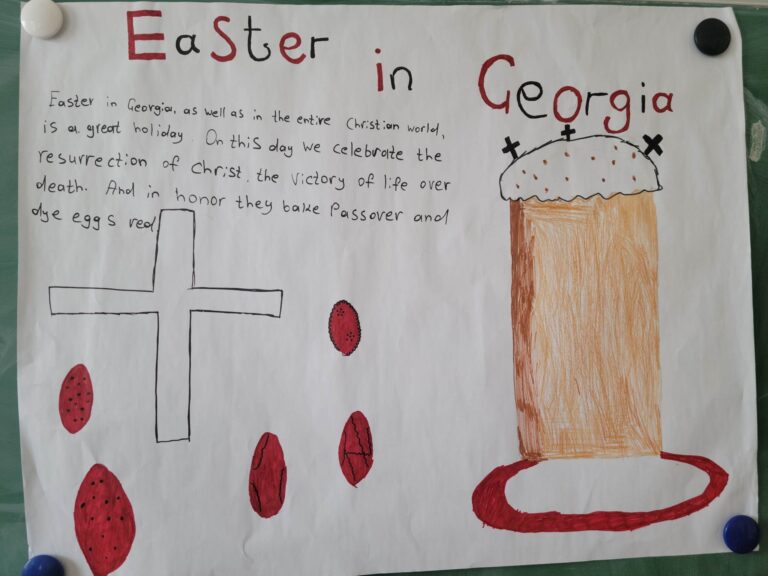 Easter in Georgia
Easter in Georgia, as well as in the entire Christian world,
is a great holiday. On this day we celebrate the
resurrection of Christ, the victory of life over
death. And in honor they bake Passover and
dye eggs red